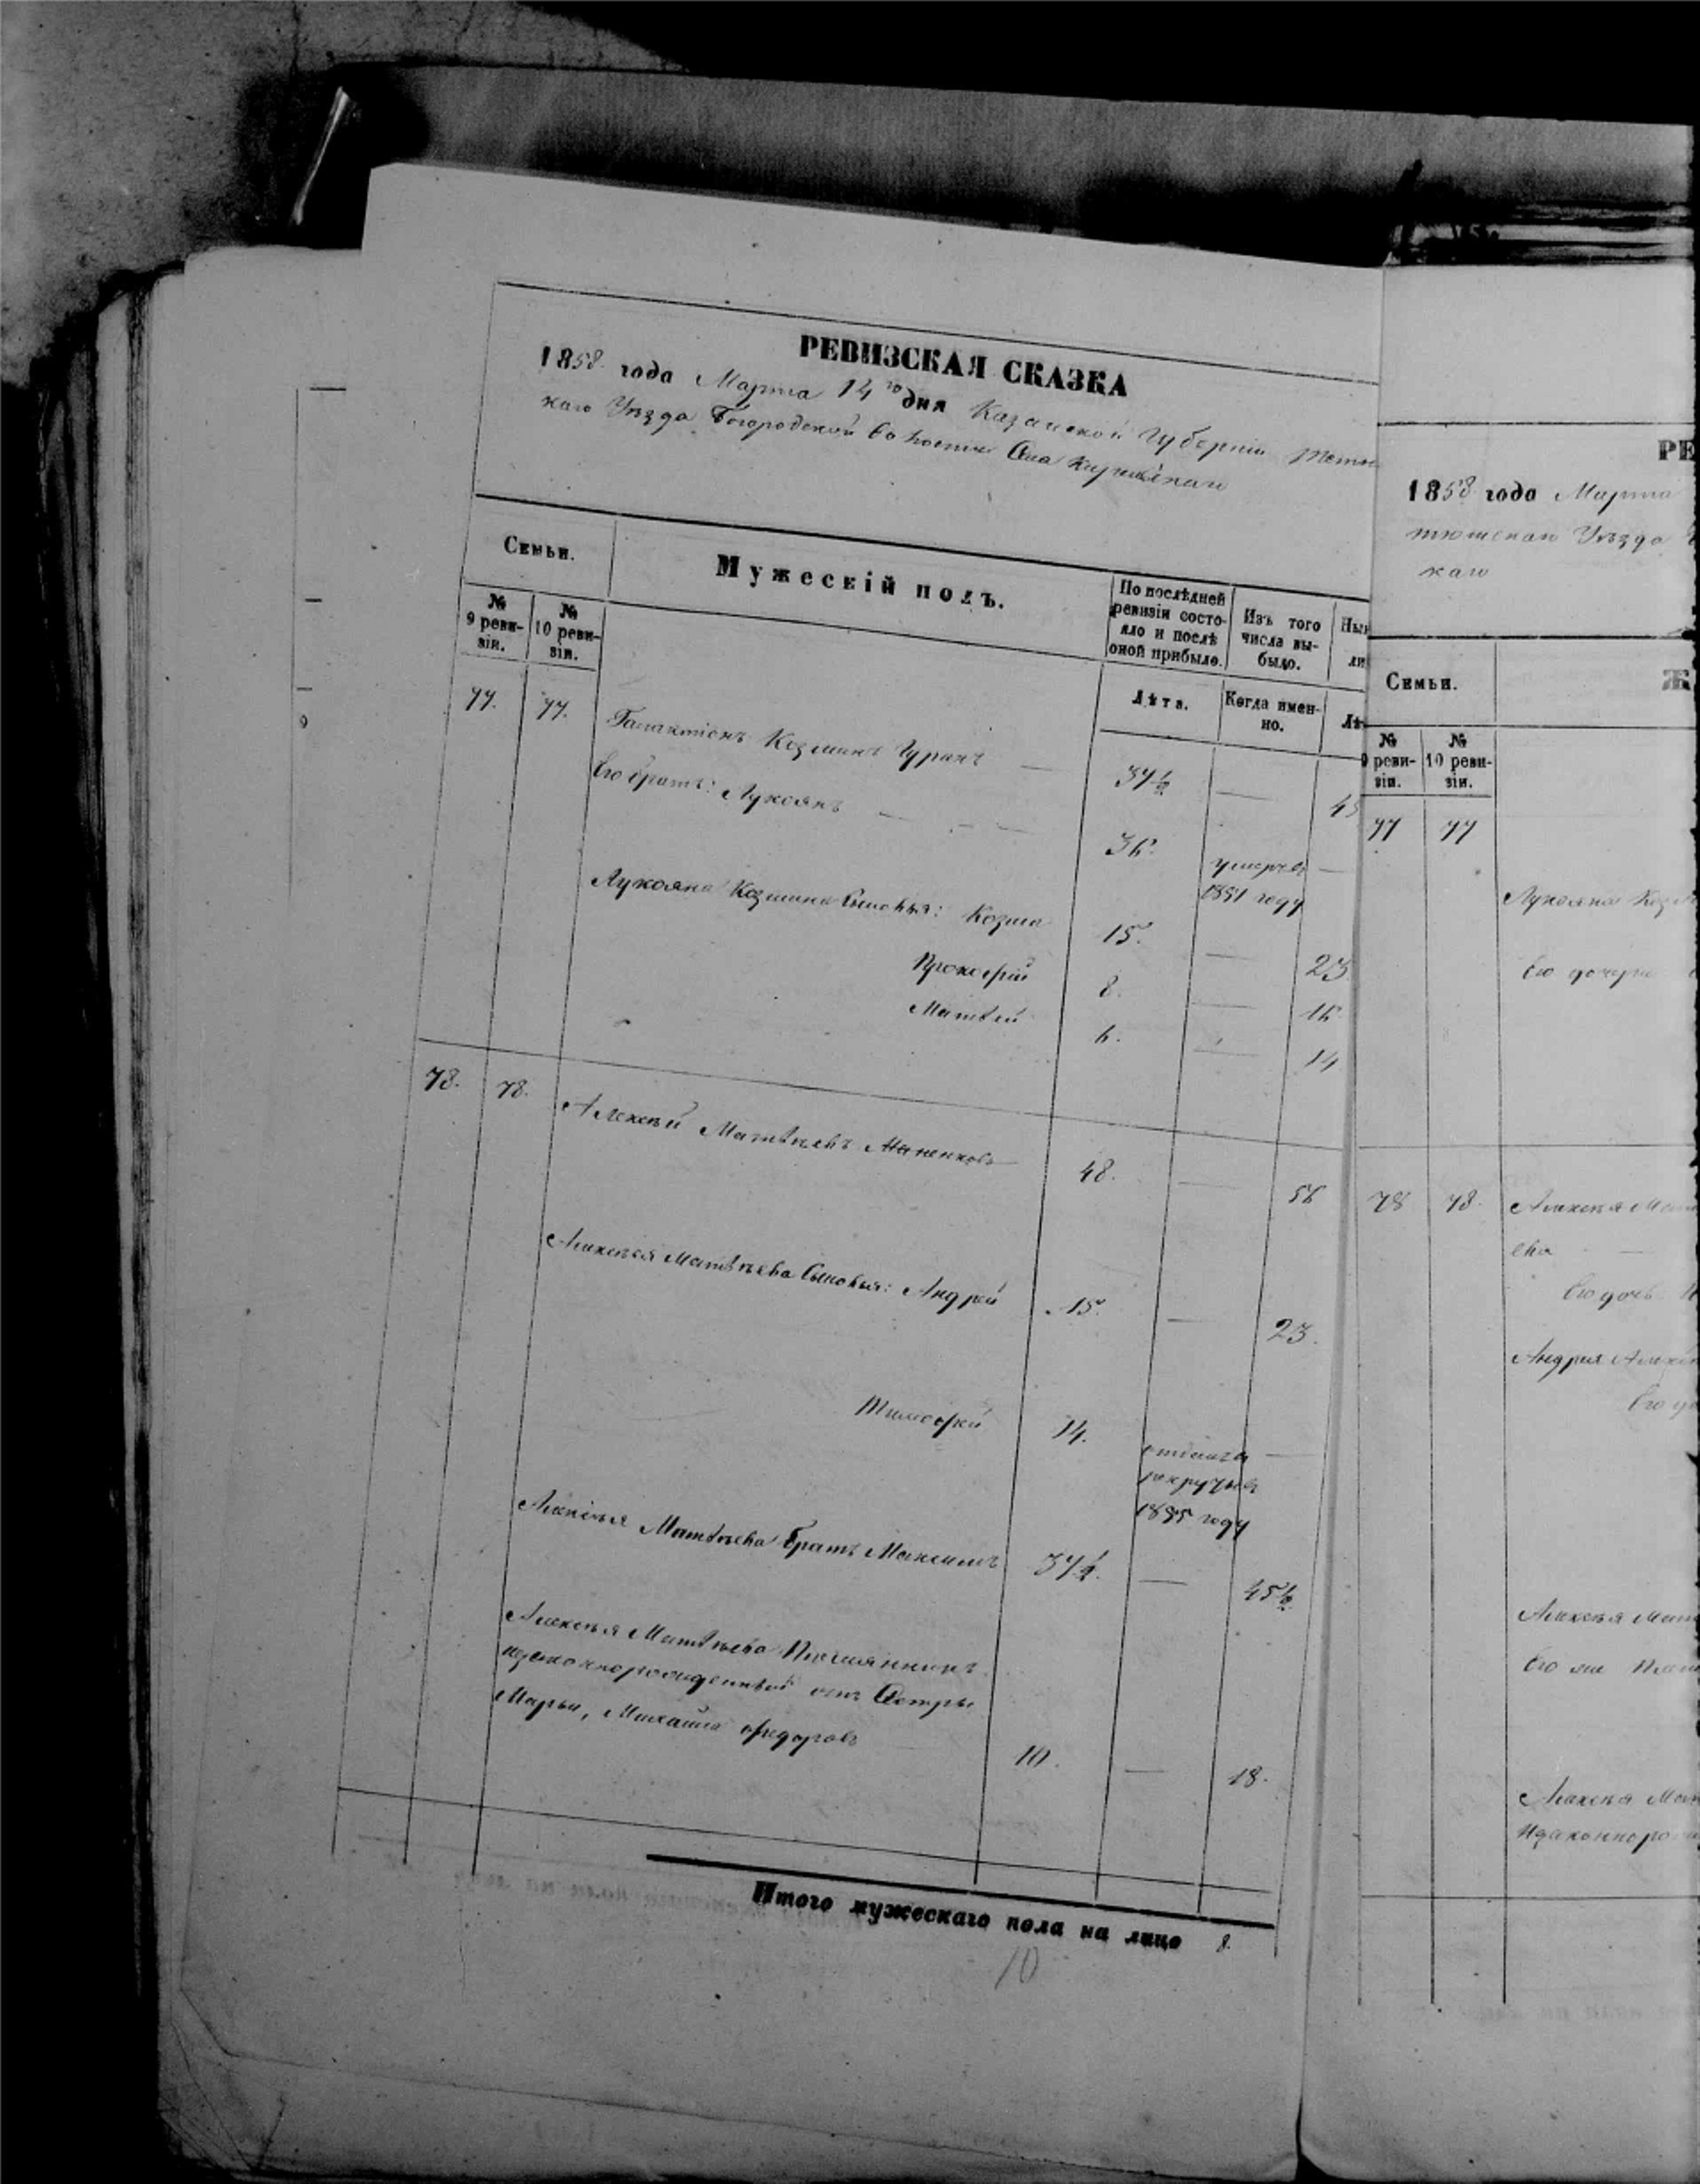 РЕВИЗСКАЯ СКАЗКА
1858 года Марта 14го дня Казанской Губерніи Тетю
каго Уѣзда Богородской волости Села
Семьи.
Мужескій полъ.
По послѣдней ревизіи состояло и послѣ оной прибыло.
Изъ того числа выбыло.
Нын
ли
№ 9 ревизіи.
№ 10 ревизіи.
Лѣта.
Когда именно.
Лѣ
77. 77. Галактіонъ Козминъ Гуринъ — 37½ — 45
Его братъ: Лукоянъ — — — 36. умеръ въ —
1851 году
Лукояна Козмина Сыновья: Козма 15. — 23.
Прокофій 8. — 16.
Матвѣй 6. — 14
78. 78. Алексѣй Матвѣевъ 48. — 56
Алексѣя Матвѣева Сыновья: Андрей 15. — 23.
Тимофей 14. отданъ въ —
рекруты въ
1855 году
Алексѣя Матвѣева Братъ Максимъ 37½. — 45½.
Алексѣя Матвѣева Племянникъ
незаконнорожденный отъ Сестры
Марьи, Михайла Федоровъ 10. — 18.
Итого мужескаго пола на лицо 8.
10
РЕ
1858 года Марта
тюшскаго Уѣзда
каго
Семьи.
Ж
№ 9 ревизіи.
№ 10 ревизіи.
77 77
Лукояна Коз
Его дочери
78 78. Алексѣя Мат
ева —
Его дочь
Андрея Алексѣ
Его до
Алексѣя Мат
Его же Плем
Алексѣя Мат
незаконноро